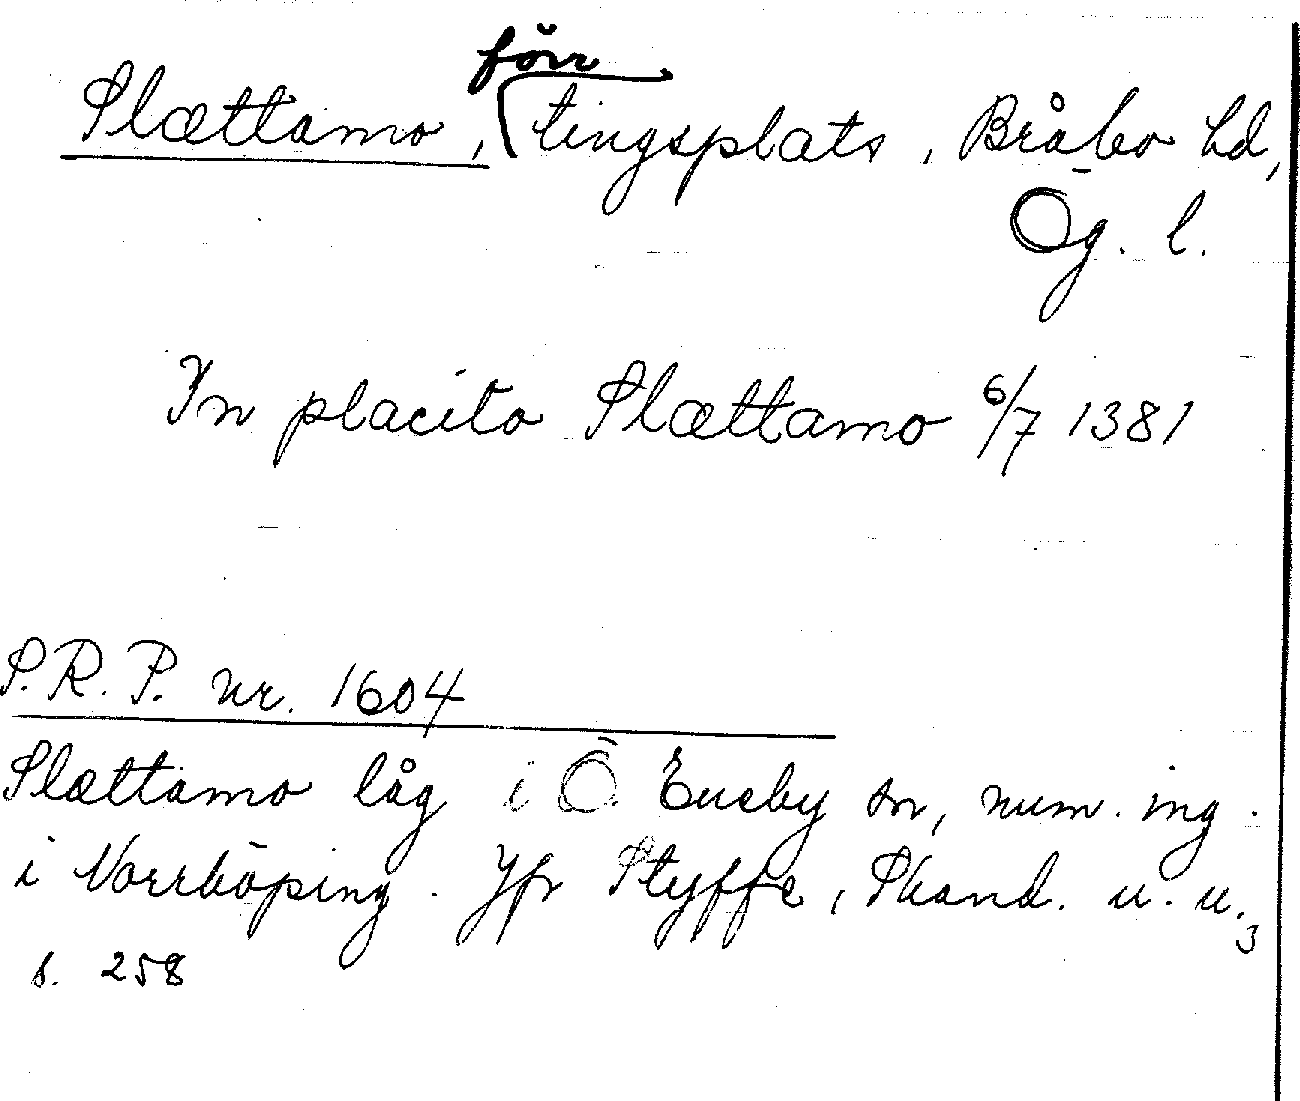 Slættamo, förr tingsplats, Bråbo hd,
Ög. l.
In placito Slættamo 6/7 1381
S.R.P. nr. 1604
Slættamo låg i Ö. Eneby sn, num. ing.
i Norrköping. Jfr Styffe, Skand. u. u.3
s. 258